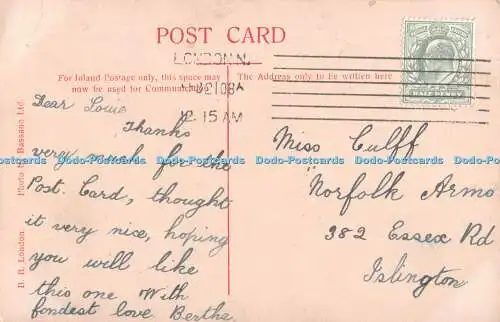 POST CARD
LONDON.N.
For Inland Postage only, this space may
now be used for Communication.
The Address only to be written here
12.15AM
Dear Louie
Thanks
very much for the
Post. Card, thought
it very nice, hoping
you will like
this one With
fondest love Bertha
Miss Culff
Norfolk Arms
382 Essex Rd
Islington
B. B. London
Photo by Bassano Ltd.
Dodo-Postcards Dodo-Postcards Dodo-Postcards Dodo-Postcards